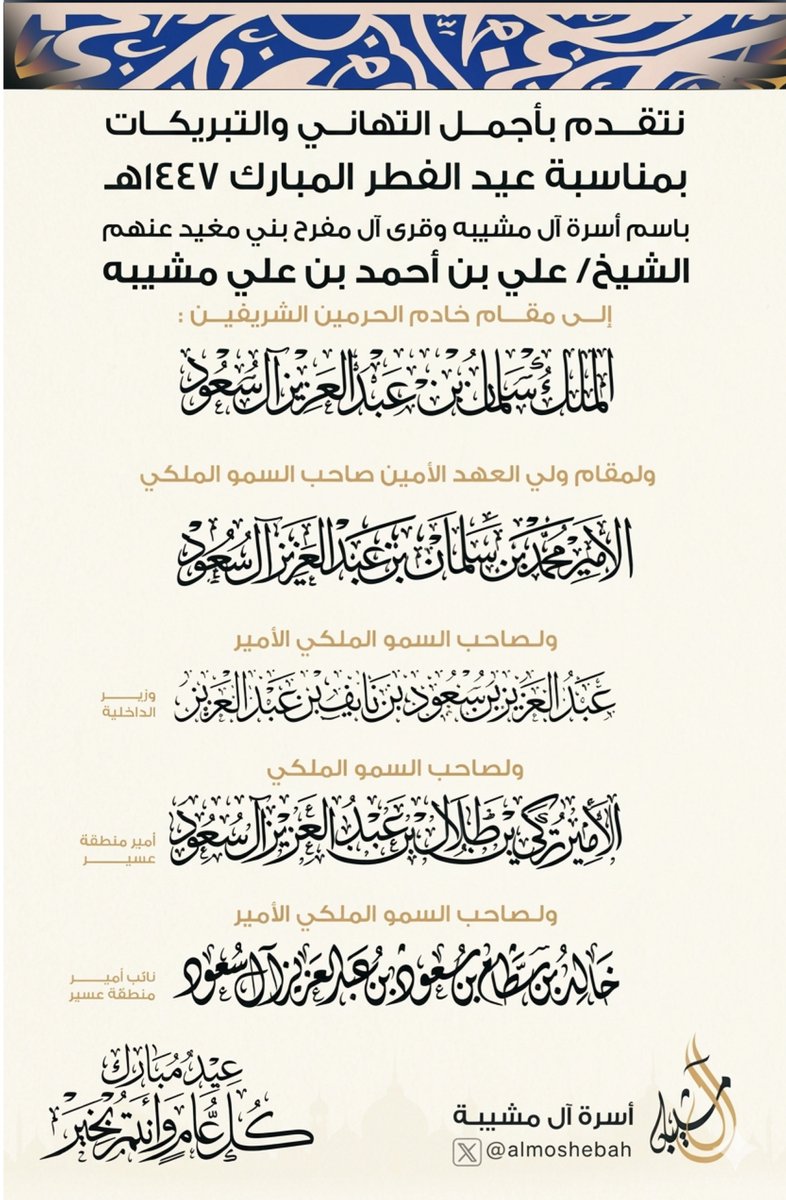 نتقدم بأجمل التهاني والتبريكات
بمناسبة عيد الفطر المبارك ١٤٤٧هـ
باسم أسرة آل مشيبه وقرى آل مفرح بني مغيد عنهم
الشيخ/ علي بن أحمد بن علي مشيبه
إلى مقام خادم الحرمين الشريفين :
الملك سلمان بن عبدالعزيز آل سعود
ولمقام ولي العهد الأمين صاحب السمو الملكي
الأمير محمد بن سلمان بن عبدالعزيز آل سعود
ولصاحب السمو الملكي الأمير
عبدالعزيز بن سعود بن نايف بن عبدالعزيز
وزير
الداخلية
ولصاحب السمو الملكي
الأمير تركي بن طلال بن عبدالعزيز آل سعود
أمير منطقة
عسير
ولصاحب السمو الملكي الأمير
خالد بن سطام بن سعود بن عبدالعزيز آل سعود
نائب أمير
منطقة عسير
آل مشيبه
أسرة آل مشيبة
@almoshebah
عيد مبارك
كل عام وأنتم بخير